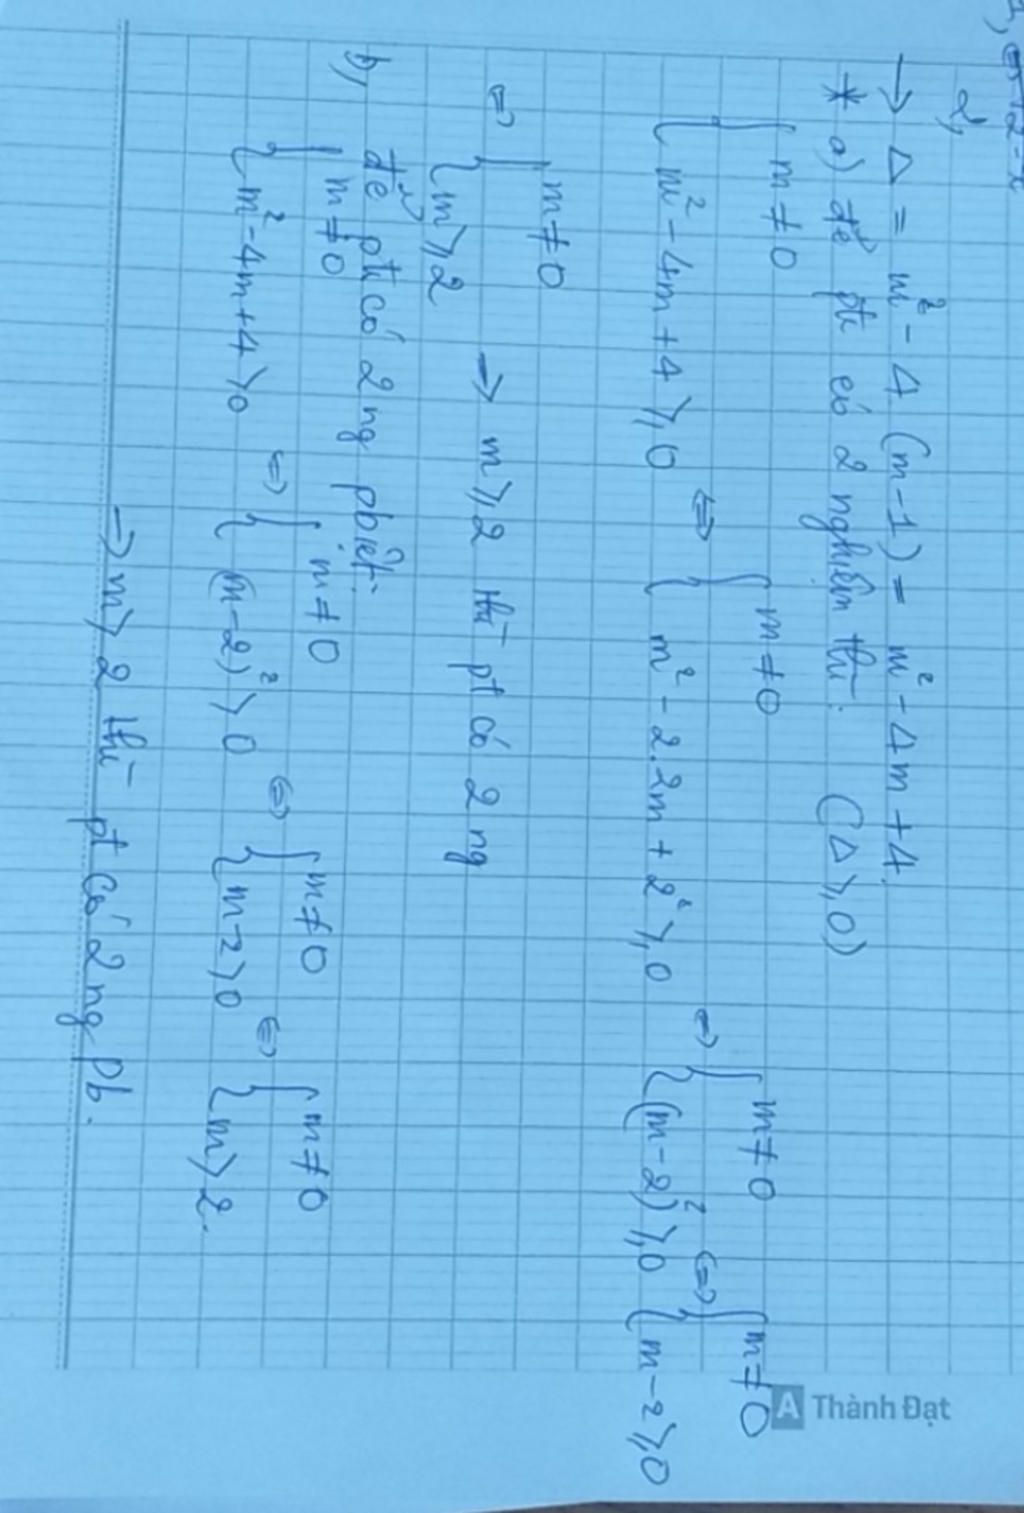 2,
→ Δ = m² - 4.(m-1) = m² - 4m + 4.
* a) để pt có 2 nghiệm thì: (Δ ≥ 0)
{ m ≠ 0 ; m² - 4m + 4 ≥ 0 ⇔ { m ≠ 0 ; m² - 2.2m + 2² ≥ 0 ⇔ { m ≠ 0 ; (m-2)² ≥ 0 ⇔ { m ≠ 0 ; m - 2 ≥ 0
⇔ { m ≠ 0 ; m ≥ 2 → m ≥ 2 thì pt có 2 ng
b, để pt có 2 ng pbiệt:
{ m ≠ 0 ; m² - 4m + 4 > 0 ⇔ { m ≠ 0 ; (m-2)² > 0 ⇔ { m ≠ 0 ; m - 2 > 0 ⇔ { m ≠ 0 ; m > 2.
→ m > 2 thì pt có 2 ng pb.
A Thành Đạt